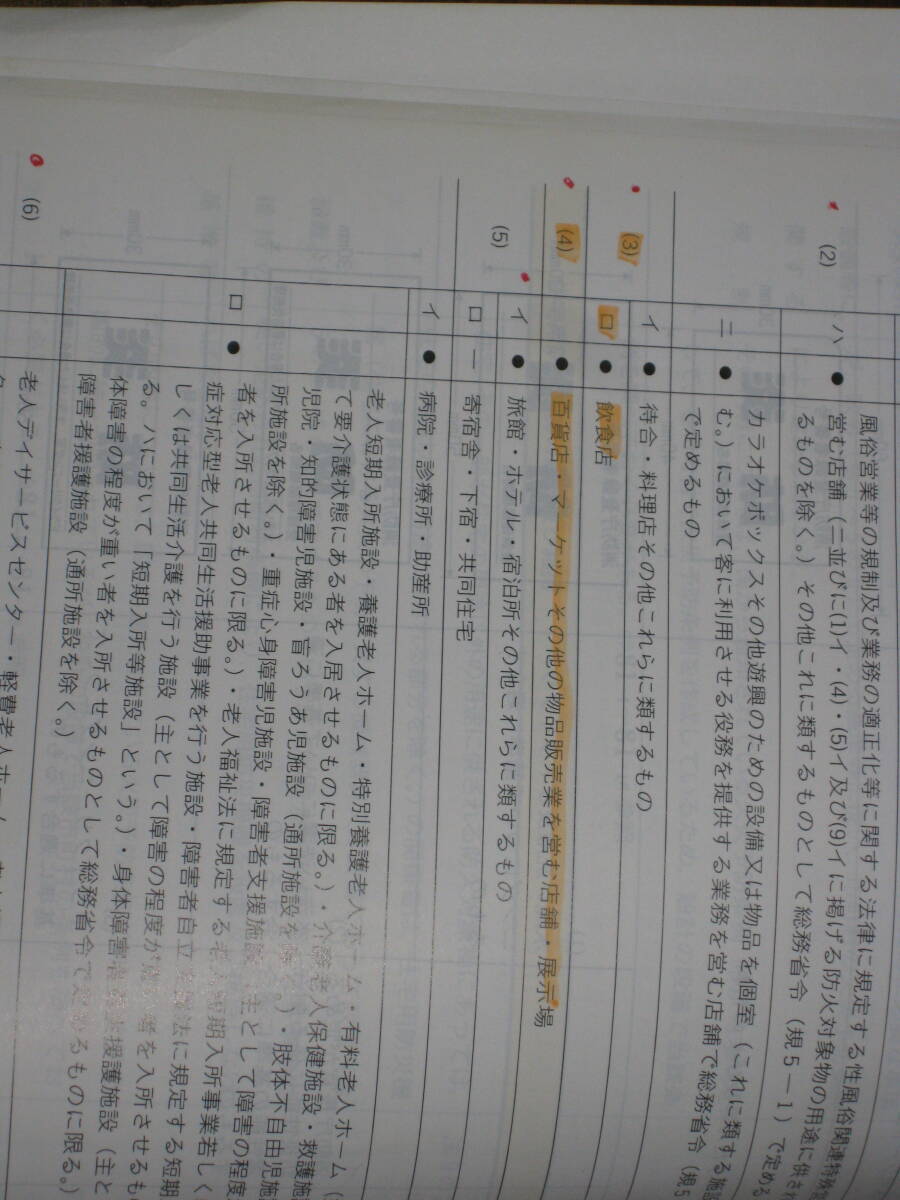 (2)
ハ ● 風俗営業等の規制及び業務の適正化等に関する法律に規定する性風俗関連特殊
営む店舗（ニ並びに(1)イ・(4)・(5)イ及び(9)イに掲げる防火対象物の用途に供さ
るものを除く。）その他これに類するものとして総務省令（規5－1）で定める
ニ ● カラオケボックスその他遊興のための設備又は物品を個室（これに類する施
む。）において客に利用させる役務を提供する業務を営む店舗で総務省令（規5
で定めるもの
(3)
イ ● 待合・料理店その他これらに類するもの
ロ ● 飲食店
(4) ● 百貨店・マーケットその他の物品販売業を営む店舗・展示場
(5)
イ ● 旅館・ホテル・宿泊所その他これらに類するもの
ロ － 寄宿舎・下宿・共同住宅
(6)
イ ● 病院・診療所・助産所
ロ ● 老人短期入所施設・養護老人ホーム・特別養護老人ホーム・有料老人ホーム（
て要介護状態にある者を入居させるものに限る。）・介護老人保健施設・救護施
児院・知的障害児施設・盲ろうあ児施設（通所施設を除く。）・肢体不自由児施
所施設を除く。）・重症心身障害児施設・障害者支援施設（主として障害の程度
者を入所させるものに限る。）・老人福祉法に規定する老人短期入所事業若しく
症対応型老人共同生活援助事業を行う施設・障害者自立支援法に規定する短期
しくは共同生活介護を行う施設（主として障害の程度が 者を入所させるも
る。ハにおいて「短期入所等施設」という。）・身体障害者 援護施設（主と
体障害の程度が重い者を入所させるものとして総務省令で定めるものに限る。）
障害者援護施設（通所施設を除く。）
老人デイサービスセンター・軽費老人ホーム